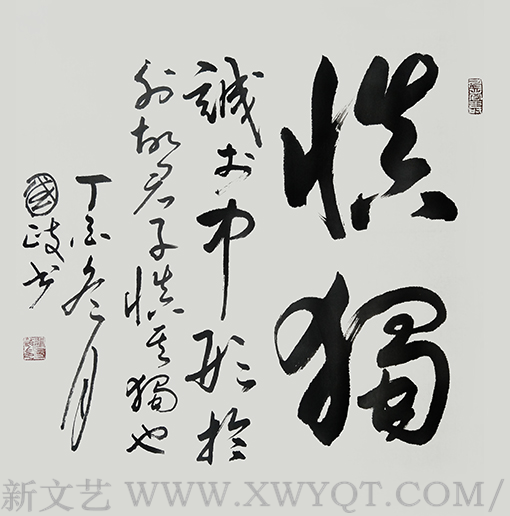 慎獨
誠於中形於
外故君子慎其獨也
丁酉冬月
國政书
新文艺 WWW.XWYQT.COM/